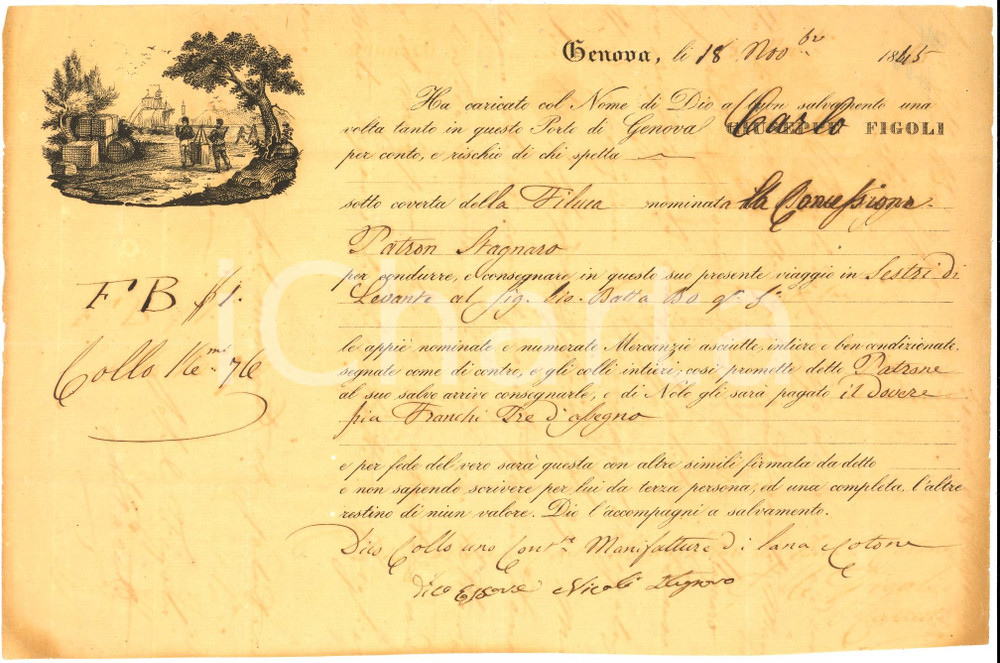 Genova, li 18 Nov.bre 1845
Ha caricato col Nome di Dio a buon salvamento una
volta tanto in questo Porto di Genova Carlo FIGOLI
per conto, e rischio di chi spetta
sotto coverta della Filuca nominata La Concessione
Patron Stagnaro
per condurre, e consegnare in questo suo presente viaggio in Sestri di
Levante al Sig. Gio. Batta Bo q.
le appiè nominate e numerate Mercanzie asciutte, intiere e ben condizionate,
segnate come di contro, e gli colli intieri; così promette detto Patrone
al suo salvo arrivo consegnarle, e di Nolo gli sarà pagato il dovere
sia Franchi Tre d'assegno
e per fede del vero sarà questa con altre simili firmata da detto
e non sapendo scrivere per lui da terza persona, ed una completa, l'altre
restino di niun valore. Dio l'accompagni a salvamento.
Dico Collo uno Con.te Manifatture di lana e Cotone
dico Essere Nicoli
F B 1.
Collo 76
iCharta